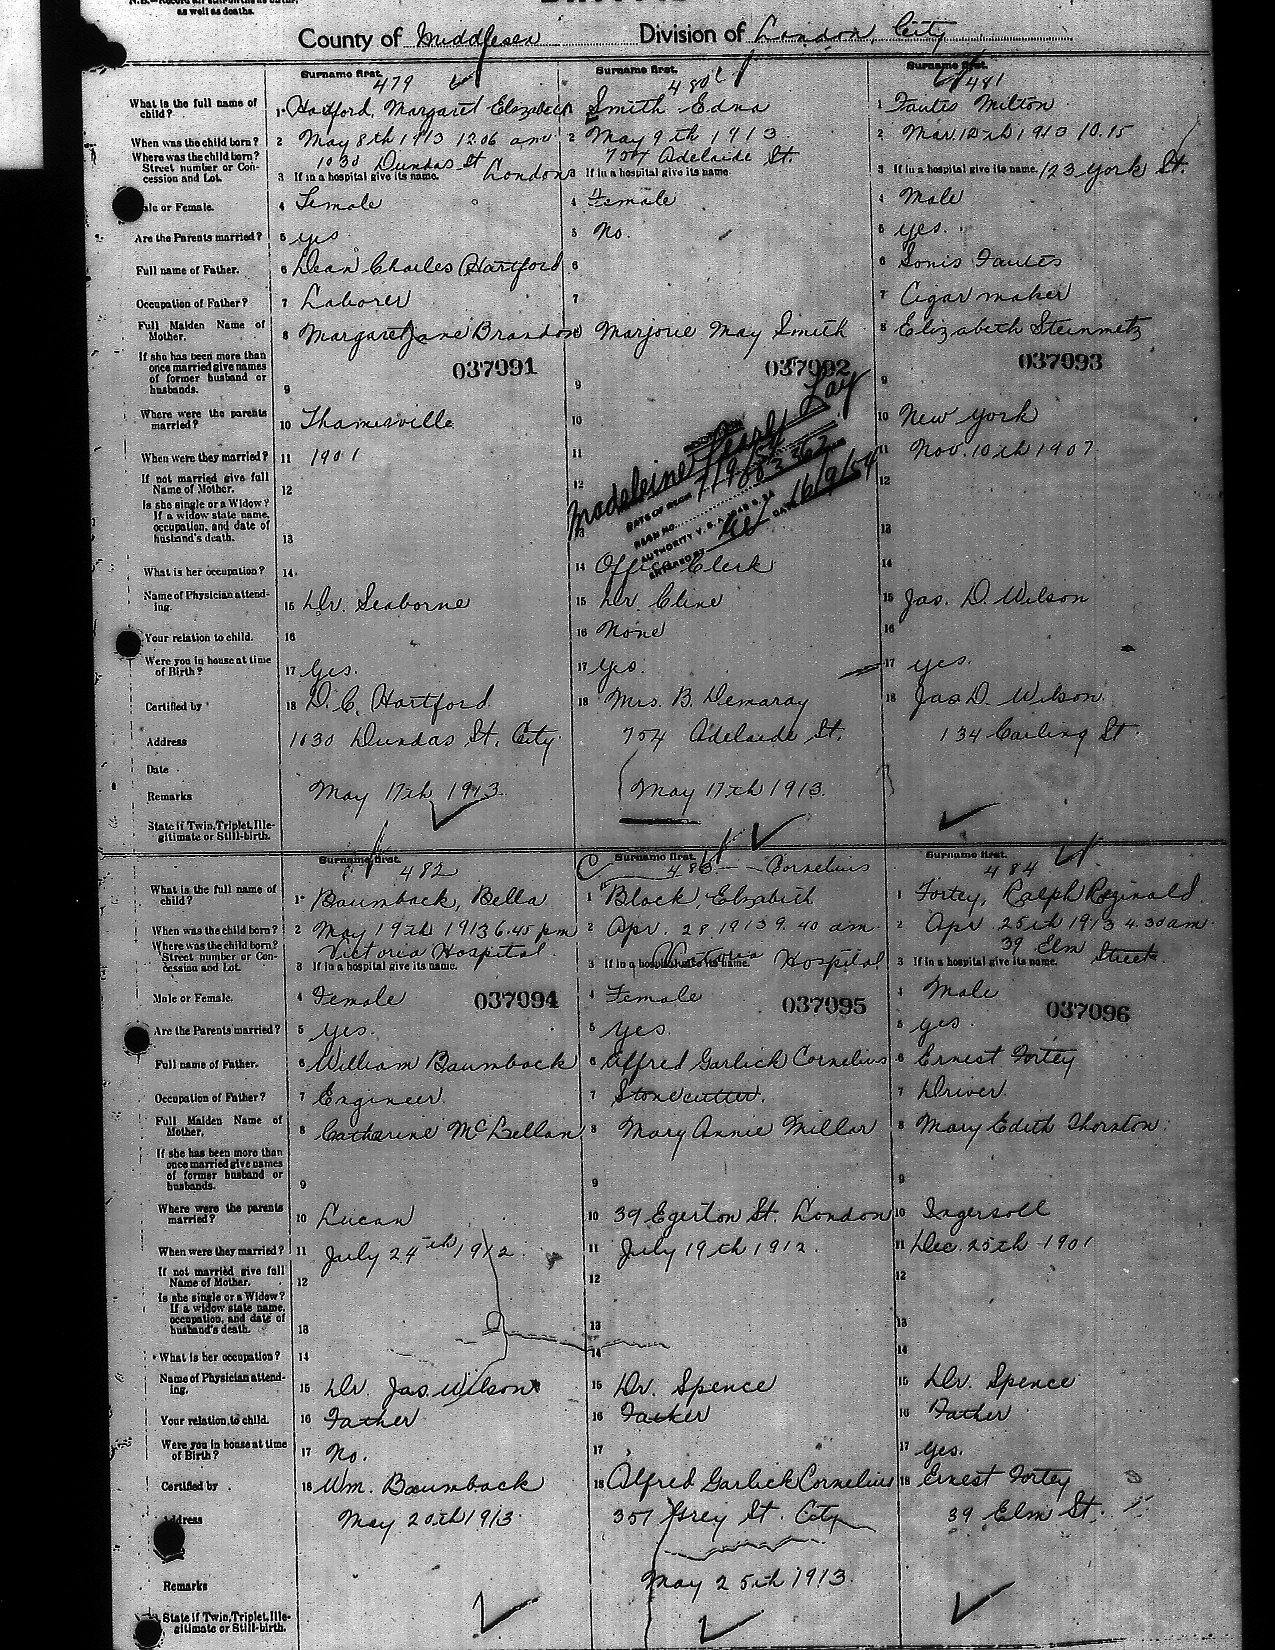 as well as deaths.
County of Middlesex Division of London, City
Surname first. Surname first. Surname first.
479 480 481
What is the full name of child? 1 Hartford, Margaret Elizabeth 1 Smith Edna 1 Fautes Milton
When was the child born? 2 May 8th 1913 12.06 am 2 May 9th 1913 2 1913 10.15
Where was the child born? Street number or Concession and Lot. 1030 Dundas St 704 Adelaide St.
3 If in a hospital give its name. London 3 If in a hospital give its name. 3 If in a hospital give its name. 123 York St.
Male or Female. 4 Female 4 Female 4 Male
Are the Parents married? 5 yes 5 No. 5 yes.
Full name of Father. 6 Dean Charles Hartford 6 6
Occupation of Father? 7 Laborer 7 7 Cigar maker
Full Maiden Name of Mother. 8 Margaret Jane Brandon 8 Marjorie May Smith 8 Elizabeth Steinmetz
037091 037092 037093
If she has been more than once married give names of former husband or husbands. 9 9 9
Where were the parents married? 10 Thamesville 10 10 New York
When were they married? 11 1901 11 11 Nov. 10th 1907
Madeleine Pearl Lay
16/9/54
If not married give full Name of Mother. 12 12 12
Is she single or a Widow? If a widow state name, occupation, and date of husband's death. 13 13 13
What is her occupation? 14 14 Office Clerk 14
Name of Physician attending. 15 Dr. Seaborne 15 Dr. Cline 15 Jas. D. Wilson
Your relation to child. 16 16 None 16
Were you in house at time of Birth? 17 Yes. 17 yes. 17 yes.
Certified by 18 D. C. Hartford 18 Mrs. B. Demaray 18 Jas D. Wilson
Address 1030 Dundas St. City 704 Adelaide St. 134 Carling St.
Date
Remarks May 17th 1913. May 17th 1913.
State if Twin, Triplet, Illegitimate or Still-birth.
Surname first. Surname first. Surname first.
482 483 Cornelius 484
What is the full name of child? 1 Baumback, Bella 1 Block, Elizabeth 1 Fortey, Ralph Reginald
When was the child born? 2 May 19th 1913 6.45 pm 2 Apr. 28 1913 9.40 am 2 Apr 25th 1913 4.30 am.
Where was the child born? Street number or Concession and Lot. Victoria Hospital Victoria Hospital 39 Elm Street
3 If in a hospital give its name. 3 If in a hospital give its name. 3 If in a hospital give its name.
Male or Female. 4 Female 037094 4 Female 037095 4 Male 037096
Are the Parents married? 5 yes. 5 yes. 5 yes.
Full name of Father. 6 William Baumback 6 Alfred Garlick Cornelius 6 Ernest Fortey
Occupation of Father? 7 Engineer 7 Stonecutter. 7 Driver
Full Maiden Name of Mother. 8 Catharine McLellan 8 Mary Annie Millar 8 Mary Edith Thornton.
If she has been more than once married give names of former husband or husbands. 9 9 9
Where were the parents married? 10 Lucan 10 39 Egerton St. London 10 Ingersoll
When were they married? 11 July 24th 1912 11 July 19th 1912. 11 Dec. 25th 1901
If not married give full Name of Mother. 12 12 12
Is she single or a Widow? If a widow state name, occupation, and date of husband's death. 13 13 13
What is her occupation? 14 14 14
Name of Physician attending. 15 Dr. Jas. Wilson 15 Dr. Spence 15 Dr. Spence
Your relation to child. 16 Father 16 Father 16 Father
Were you in house at time of Birth? 17 No. 17 17 yes.
Certified by 18 Wm. Baumback 18 Alfred Garlick Cornelius 18 Ernest Fortey
Address May 20th 1913 357 Grey St. City 39 Elm St.
Remarks May 25th 1913.
State if Twin, Triplet, Illegitimate or Still-birth.